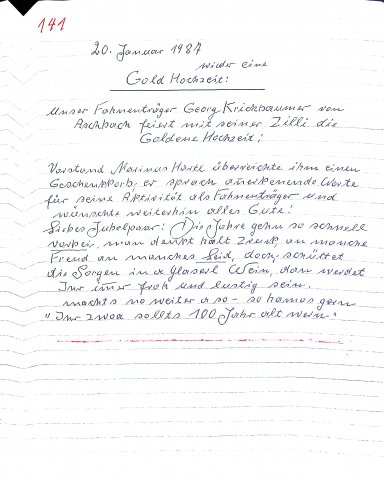 141
20. Januar 1987
wieder eine
Gold Hochzeit:
Unser Fahnenträger Georg Krichbaumer von
Aschbach feiert mit seiner Zilli die
Goldene Hochzeit!
Vorstand Marinus Härtl überreichte ihm einen
Geschenkkorb, er sprach anerkennende Worte
für seine Aktivität als Fahnenträger und
wünschte weiterhin alles Gute!
Liebes Jubelpaar: Die Jahre gehn so schnell
vorbei, man denkt halt zruck, an manche
Freud an manches Leid, doch schüttet
die Sorgen in a Glaserl Wein, dan werdet
Ihr imer froh und lustig sein.
machts no weiter a so - so hamos gern
"Ihr zwoa sollts 100 Jahr alt wern"